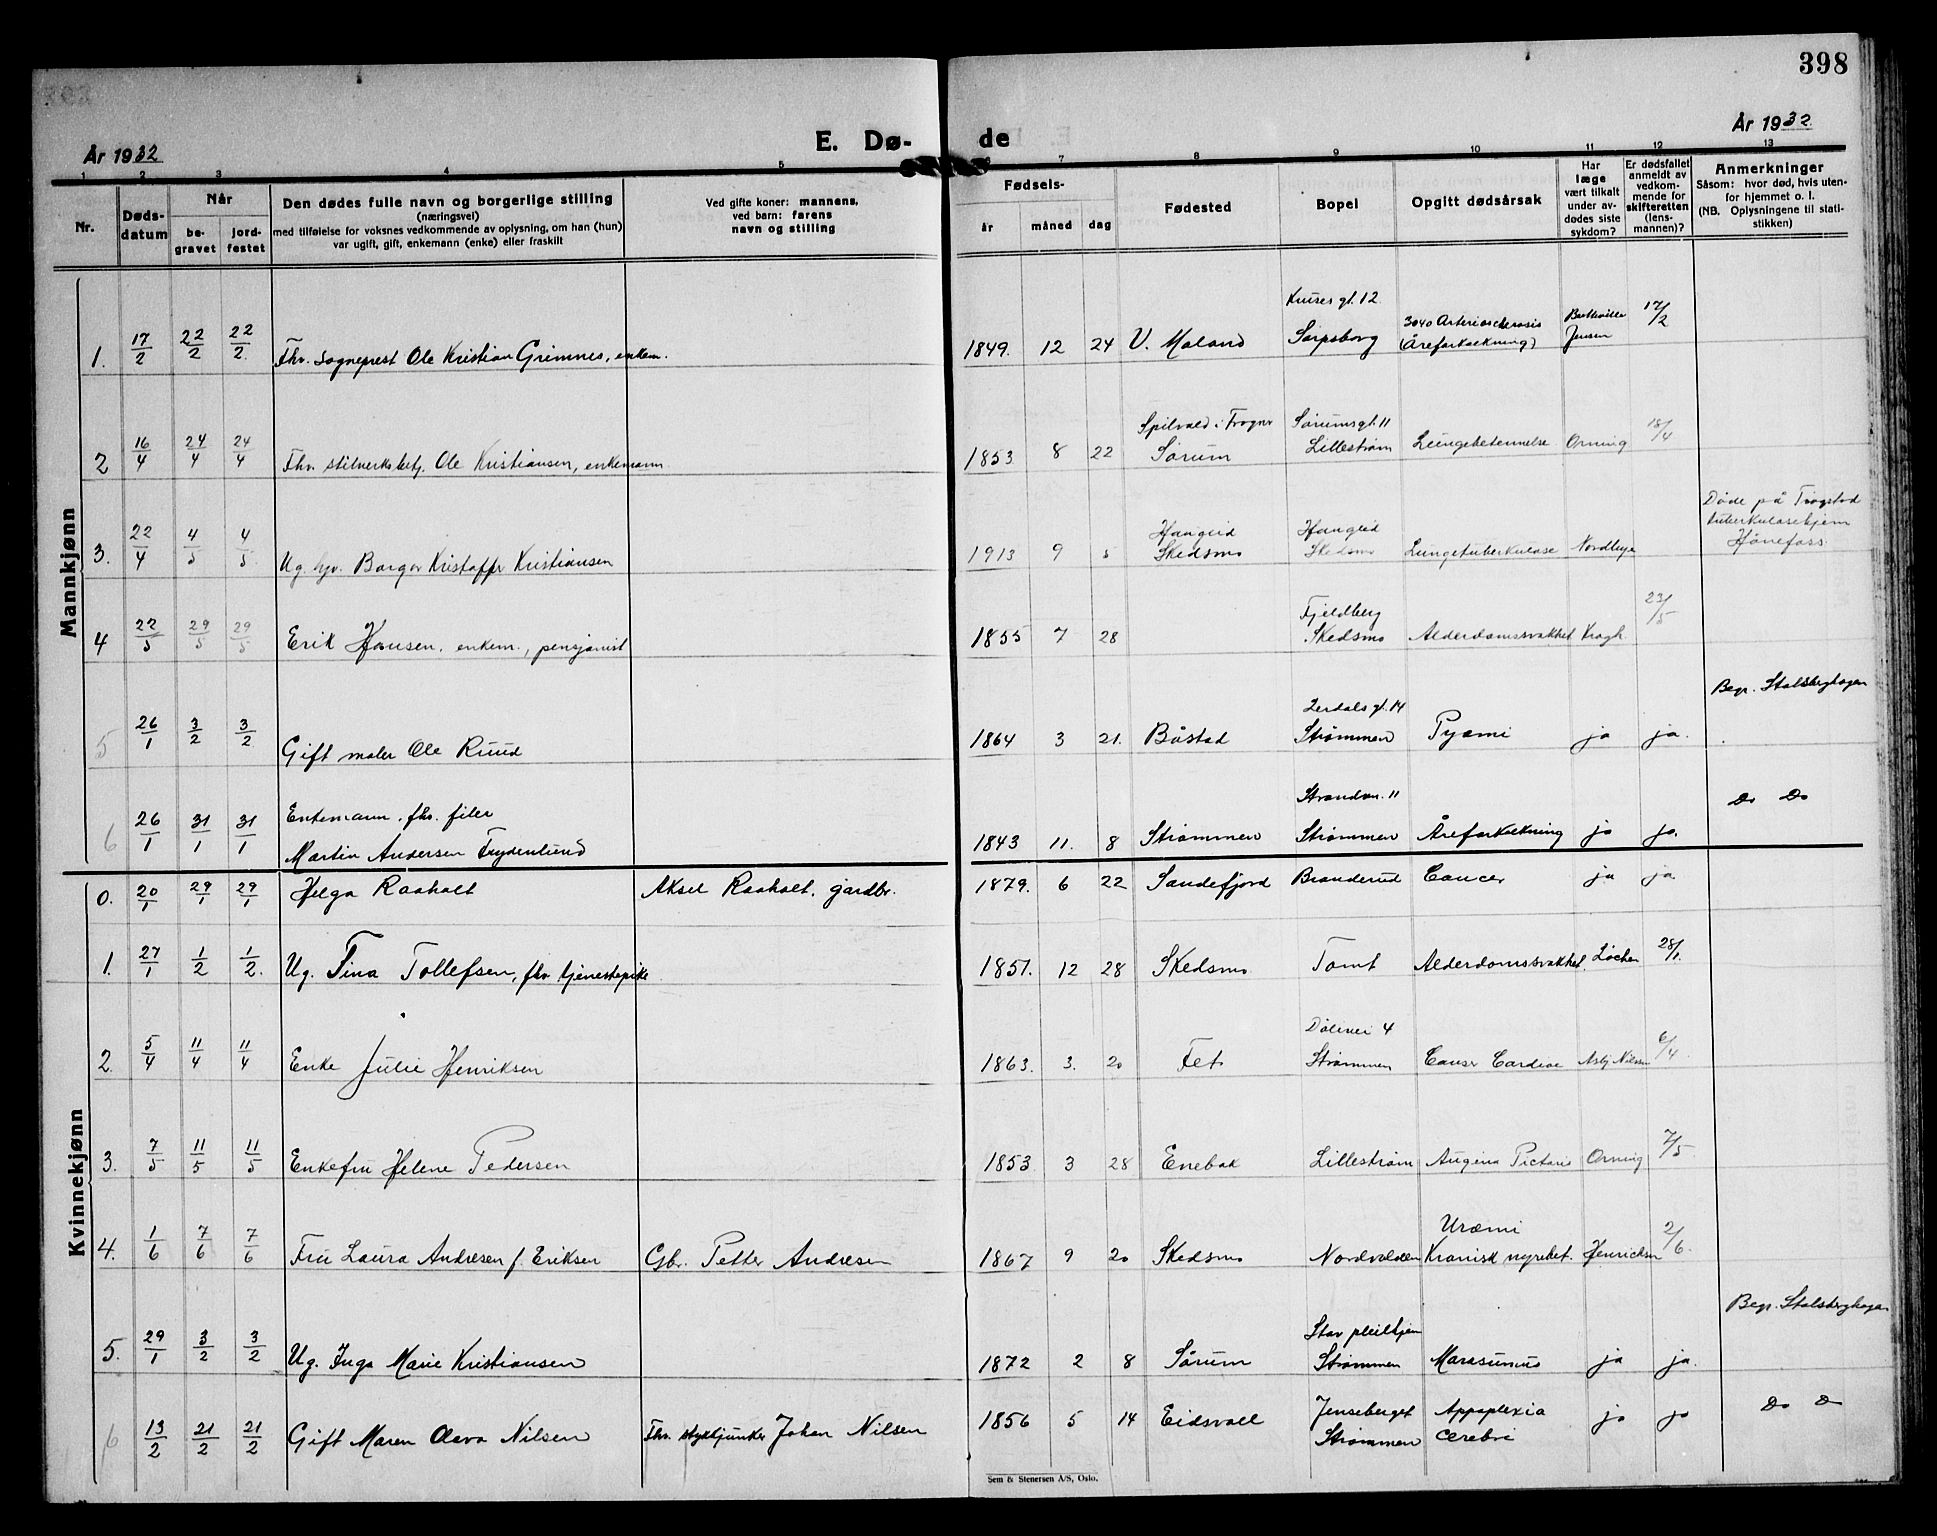 398
E. Dø- de
År 1932
År 1932
1 2 3 4 5 6 7 8 9 10 11 12 13
Nr.
Døds-
datum
Når
be-
gravet
jord-
festet
Den dødes fulle navn og borgerlige stilling
(næringsvei)
med tilføielse for voksnes vedkommende av oplysning, om han (hun)
var ugift, gift, enkemann (enke) eller fraskilt
Ved gifte koner: mannens,
ved barn: farens
navn og stilling
Fødsels-
år måned dag
Fødested
Bopel
Opgitt dødsårsak
Har
læge
vært tilkalt
under av-
dødes siste
sykdom?
Er dødsfallet
anmeldt av
vedkom-
mende for
skifteretten
(lens-
mannen)?
Anmerkninger
Såsom: hvor død, hvis uten-
for hjemmet o. l.
(NB. Oplysningene til stati-
stikken)
Mannkjønn
Kruses gt. 12
1. 17/2 22/2 22/2. Fhv. sogneprest Ole Kristian Grimnes, enkem. 1849. 12 24 V. Moland Sarpsborg 3040 Arteriosclerosis (Åreforkalkning) Jensen 17/2
Spilvald i Frogner Sørumsgt. 11
2 16/4 24/4 24/4 Fhv. Ole Kristiansen, enkemann 1853 8 22 Sørum Lillestrøm Lungebetennelse Orning 18/4
Døde på
tuberkulosehjem
Hønefoss.
Haugлid Haugлid
3. 22/4 4/5 4/5. Ug. Borger Kristoffer Kristiansen 1913 9 5 Skedsmo Skedsmo Lungetuberkulose
Fjeldberg
4 22/5 29/5 29/5 Erik Hansen, enkem., pensjonist 1855 7 28 Skedsmo Alderdomssvakhet Krogh 23/5
Begr. Stalsberghagen
gt. 14
5 26/1 3/2 3/2 Gift maler Ole Ruud 1864 3 21. Båstad Strømmen Pyæmi ja ja.
Strandvn. 11
6 26/1 31/1 31/1 Enkemann. fhv. filer
Martin Andersen Frydenlund 1843 11. 8 Strømmen Strømmen Åreforkalkning ja ja. Do Do
Kvinnekjønn
0. 20/1 29/1 29/1 Helga Raaholt Aksel Raaholt, gårdbr. 1879. 6 22 Sandefjord Branderud Cancer ja ja
1. 27/1 1/2 1/2. Ug. Tina Tollefsen, fhv. tjenestepike 1851. 12 28 Skedsmo Tomt Alderdomssvakhet. Løchen 28/1.
4
2. 5/4 11/4 11/4 Enke Julie Henriksen 1863. 3. 20 Fet Strømmen Cancer Cardiae Asbj. Nilsen 6/4
3. 7/5 11/5 11/5 Enkefru Helene Pedersen 1853 3 28 Enebak Lillestrøm Augina Pictoris Orning 7/5
Uræmi
4. 1/6 7/6 7/6 Fru Laura Andresen f. Eriksen Gbr. Petter Andresen 1867 9 20 Skedsmo Nordvolden Kronisk nyrebet. Henriksen 2/6.
Begr. Stalsberghagen
Stav pleihjem
5. 29/1 3/2 3/2 Ug. Inga Marie Kristiansen 1872 2 8 Sørum Strømmen Marasumus ja ja.
6 13/2 21/2 21/2 Gift Maren Oleva Nilsen Fhv. stykkjunker Johan Nilsen 1856 5 14 Eidsvoll Jenseberget
Strømmen Appoplexia
cerebri ja ja Do Do
Sem & Stenersen A/S, Oslo.